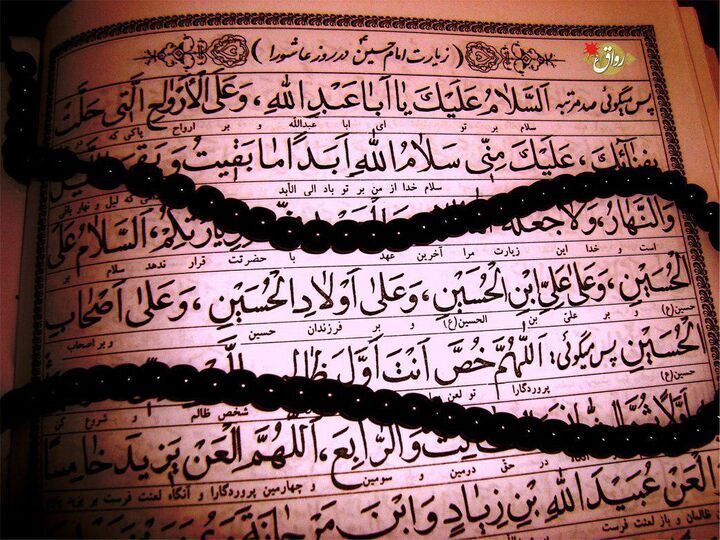 رواق
( زیارت امام حسین ع در روز عاشورا )
پس میگوئی صد مرتبه اَلسَّلامُ عَلَیْكَ یا اَبا عَبْدِ اللهِ، وَعَلَی الْاَرْواحِ الَّتی حَلَّتْ
سلام بر تو ای ابا عبدالله و بر ارواح پاکی که در
بِفِنائِكَ، عَلَیْكَ مِنّی سَلامُ اللهِ اَبَدًا ما بَقیتُ وَ بَقِیَ اللَّیْلُ
سلام خدا از من بر تو باد الی الأبد که لیل و نهار باقی
وَالنَّهارُ، وَلا جَعَلَهُ الْعَهْدِ لِزِیارَتِکُمْ، اَلسَّلامُ عَلَی
است و خدا این زیارت مرا آخرین عهد با حضرتت قرار ندهد سلام بر
الْحُسَیْنِ، وَعَلی عَلِیِّ ابْنِ الْحُسَیْنِ، وَعَلی اَوْلادِ الْحُسَیْنِ، وَعَلی اَصْحابِ
حسین(ع) و بر علیّ بن الحسین(ع) و بر فرزندان حسین و بر اصحاب
الْحُسَیْنِ پس میگوئی: اَللّهُمَّ خُصَّ اَنْتَ اَوَّلَ ظالِمٍ
حسین(ع) پروردگارا تو لعن شخص ظالم و شروع کن
وَالرّابِعَ، اَللّهُمَّ الْعَنْ یَزیدَ خامِسًا
در حق دومین و سومین و چهارمین پروردگارا و آنگاه لعنت فرست بر یزید
الْعَنْ عُبَیْدَ اللهِ بْنَ زِیادٍ وَابْنَ مَرْجانَةَ
ظالمان و باز لعنت فرست